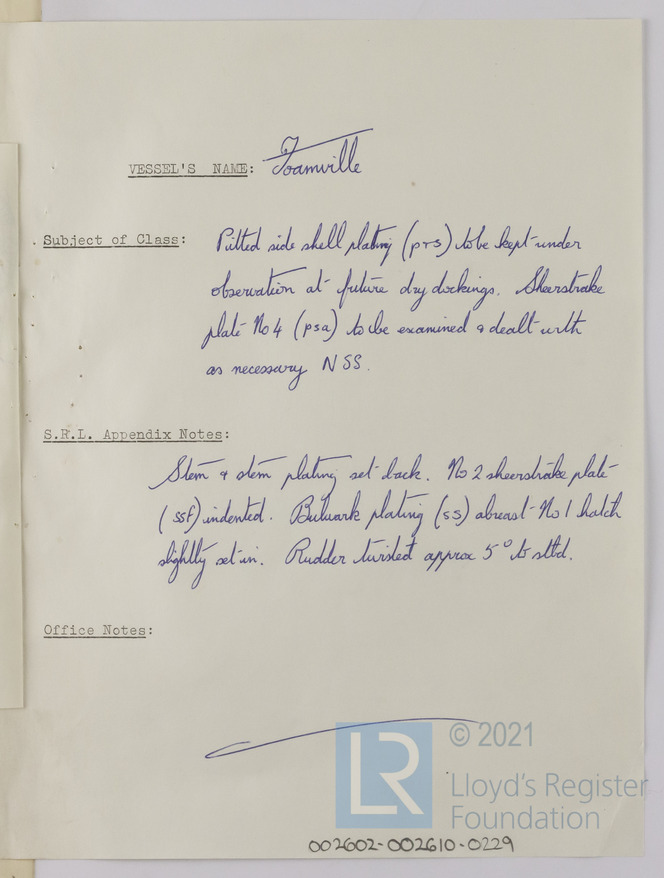 VESSEL'S NAME: Foamville
Subject of Class: Pitted side shell plating (prs) to be kept under
observation at future dry dockings. Sheerstrake
plate No 4 (psa) to be examined & dealt with
as necessary NSS.
S.R.L. Appendix Notes:
Stem & stem plating set back. No 2 sheerstrake plate
(ssf) indented. Bulwark plating (ss) abreast No 1 hatch
slightly set in. Rudder twisted approx 5° to stbd.
Office Notes:
LR
© 2021
Lloyd's Register
Foundation
002602-002610-0229